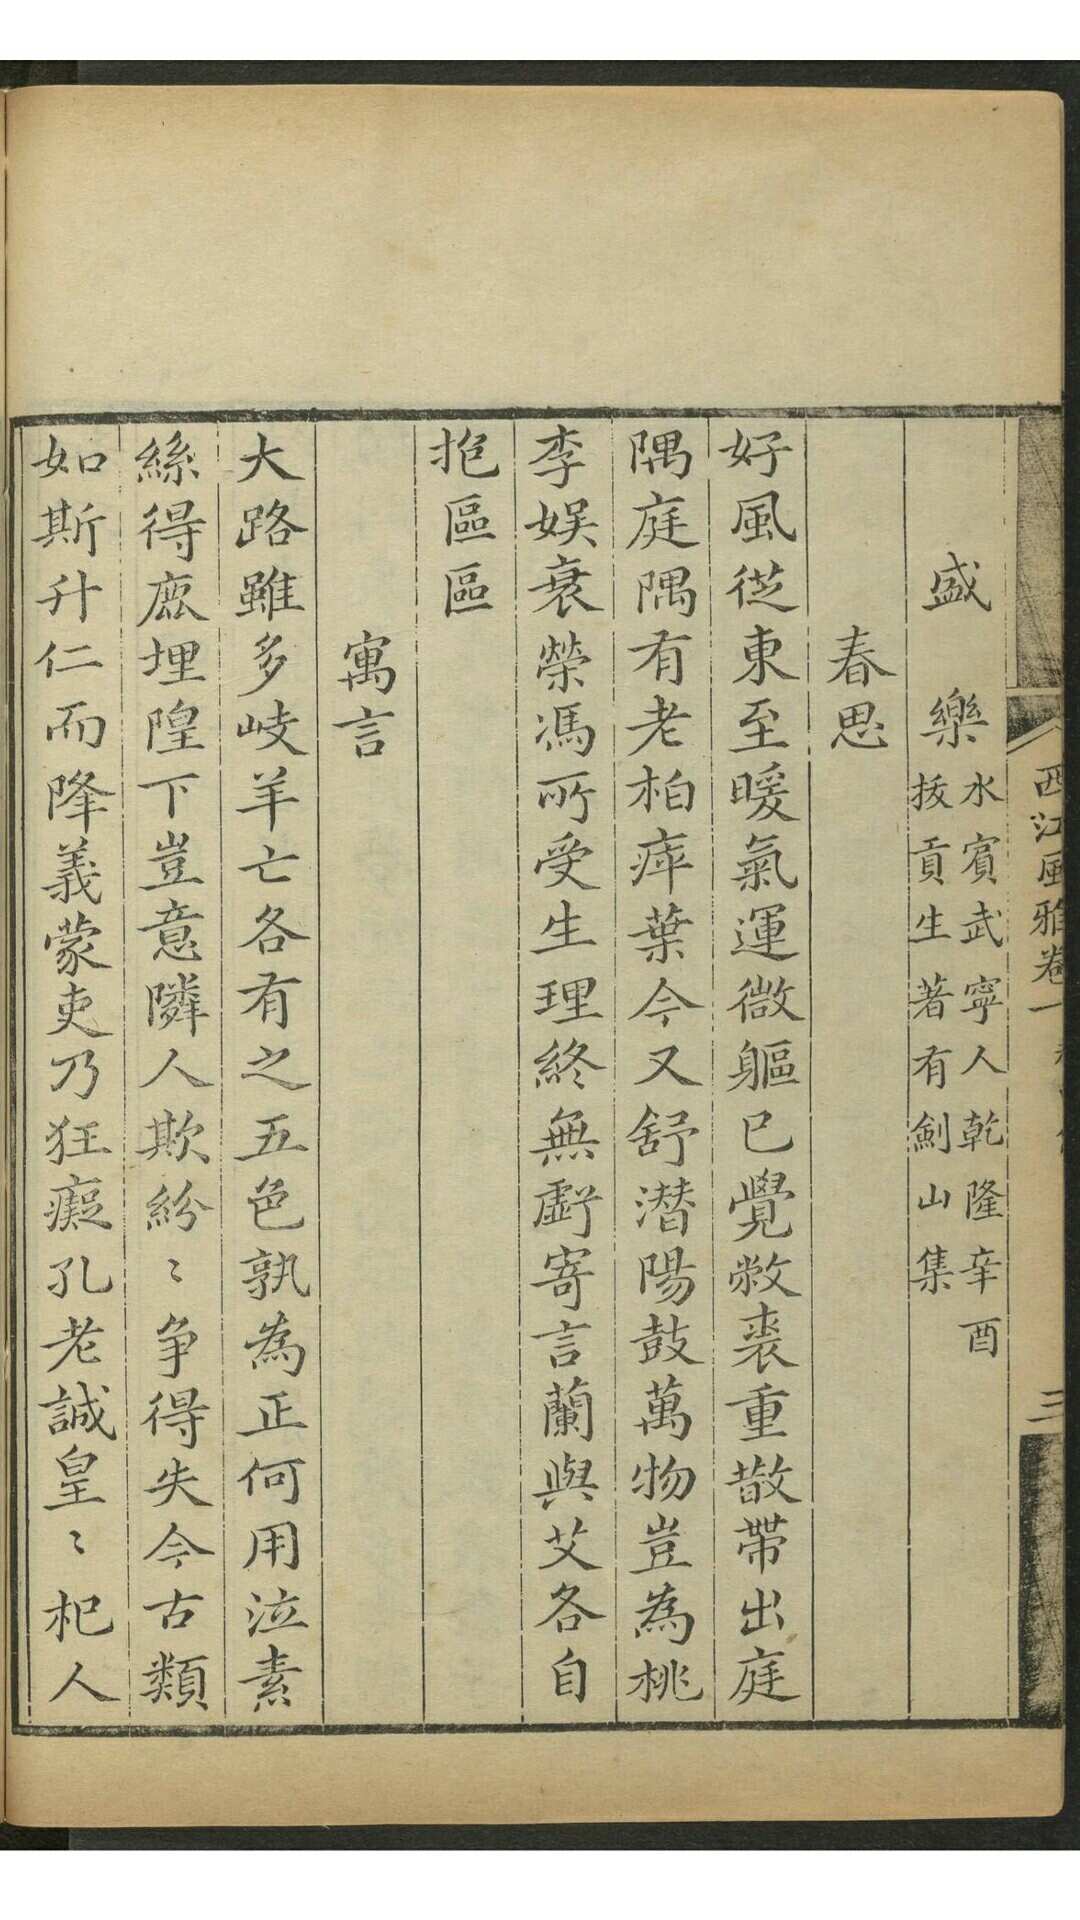 西江風雅卷一
三
盛樂 水賓武寧人乾隆辛酉
拔貢生著有劍山集
春思
好風從東至暖氣運微軀已覺敝裘重散帶出庭
隅庭隅有老柏瘁葉今又舒潛陽鼓萬物豈為桃
李娛衰榮馮所受生理終無虧寄言蘭與艾各自
抱區區
寓言
大路雖多岐羊亡各有之五色孰為正何用泣素
絲得鹿埋隍下豈意隣人欺紛〻爭得失今古類
如斯升仁而降義蒙吏乃狂癡孔老誠皇〻杞人